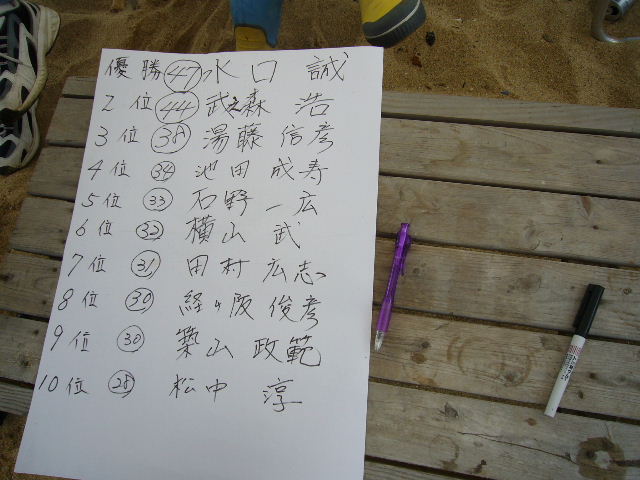 優勝 47 水口 誠
2位 44 武之森 浩
3位 38 湯藤 信彦
4位 34 池田 成寿
5位 33 石野 一広
6位 32 横山 武
7位 31 田村 広志
8位 30 経ヶ阪 俊彦
9位 30 築山 政範
10位 28 松中 淳